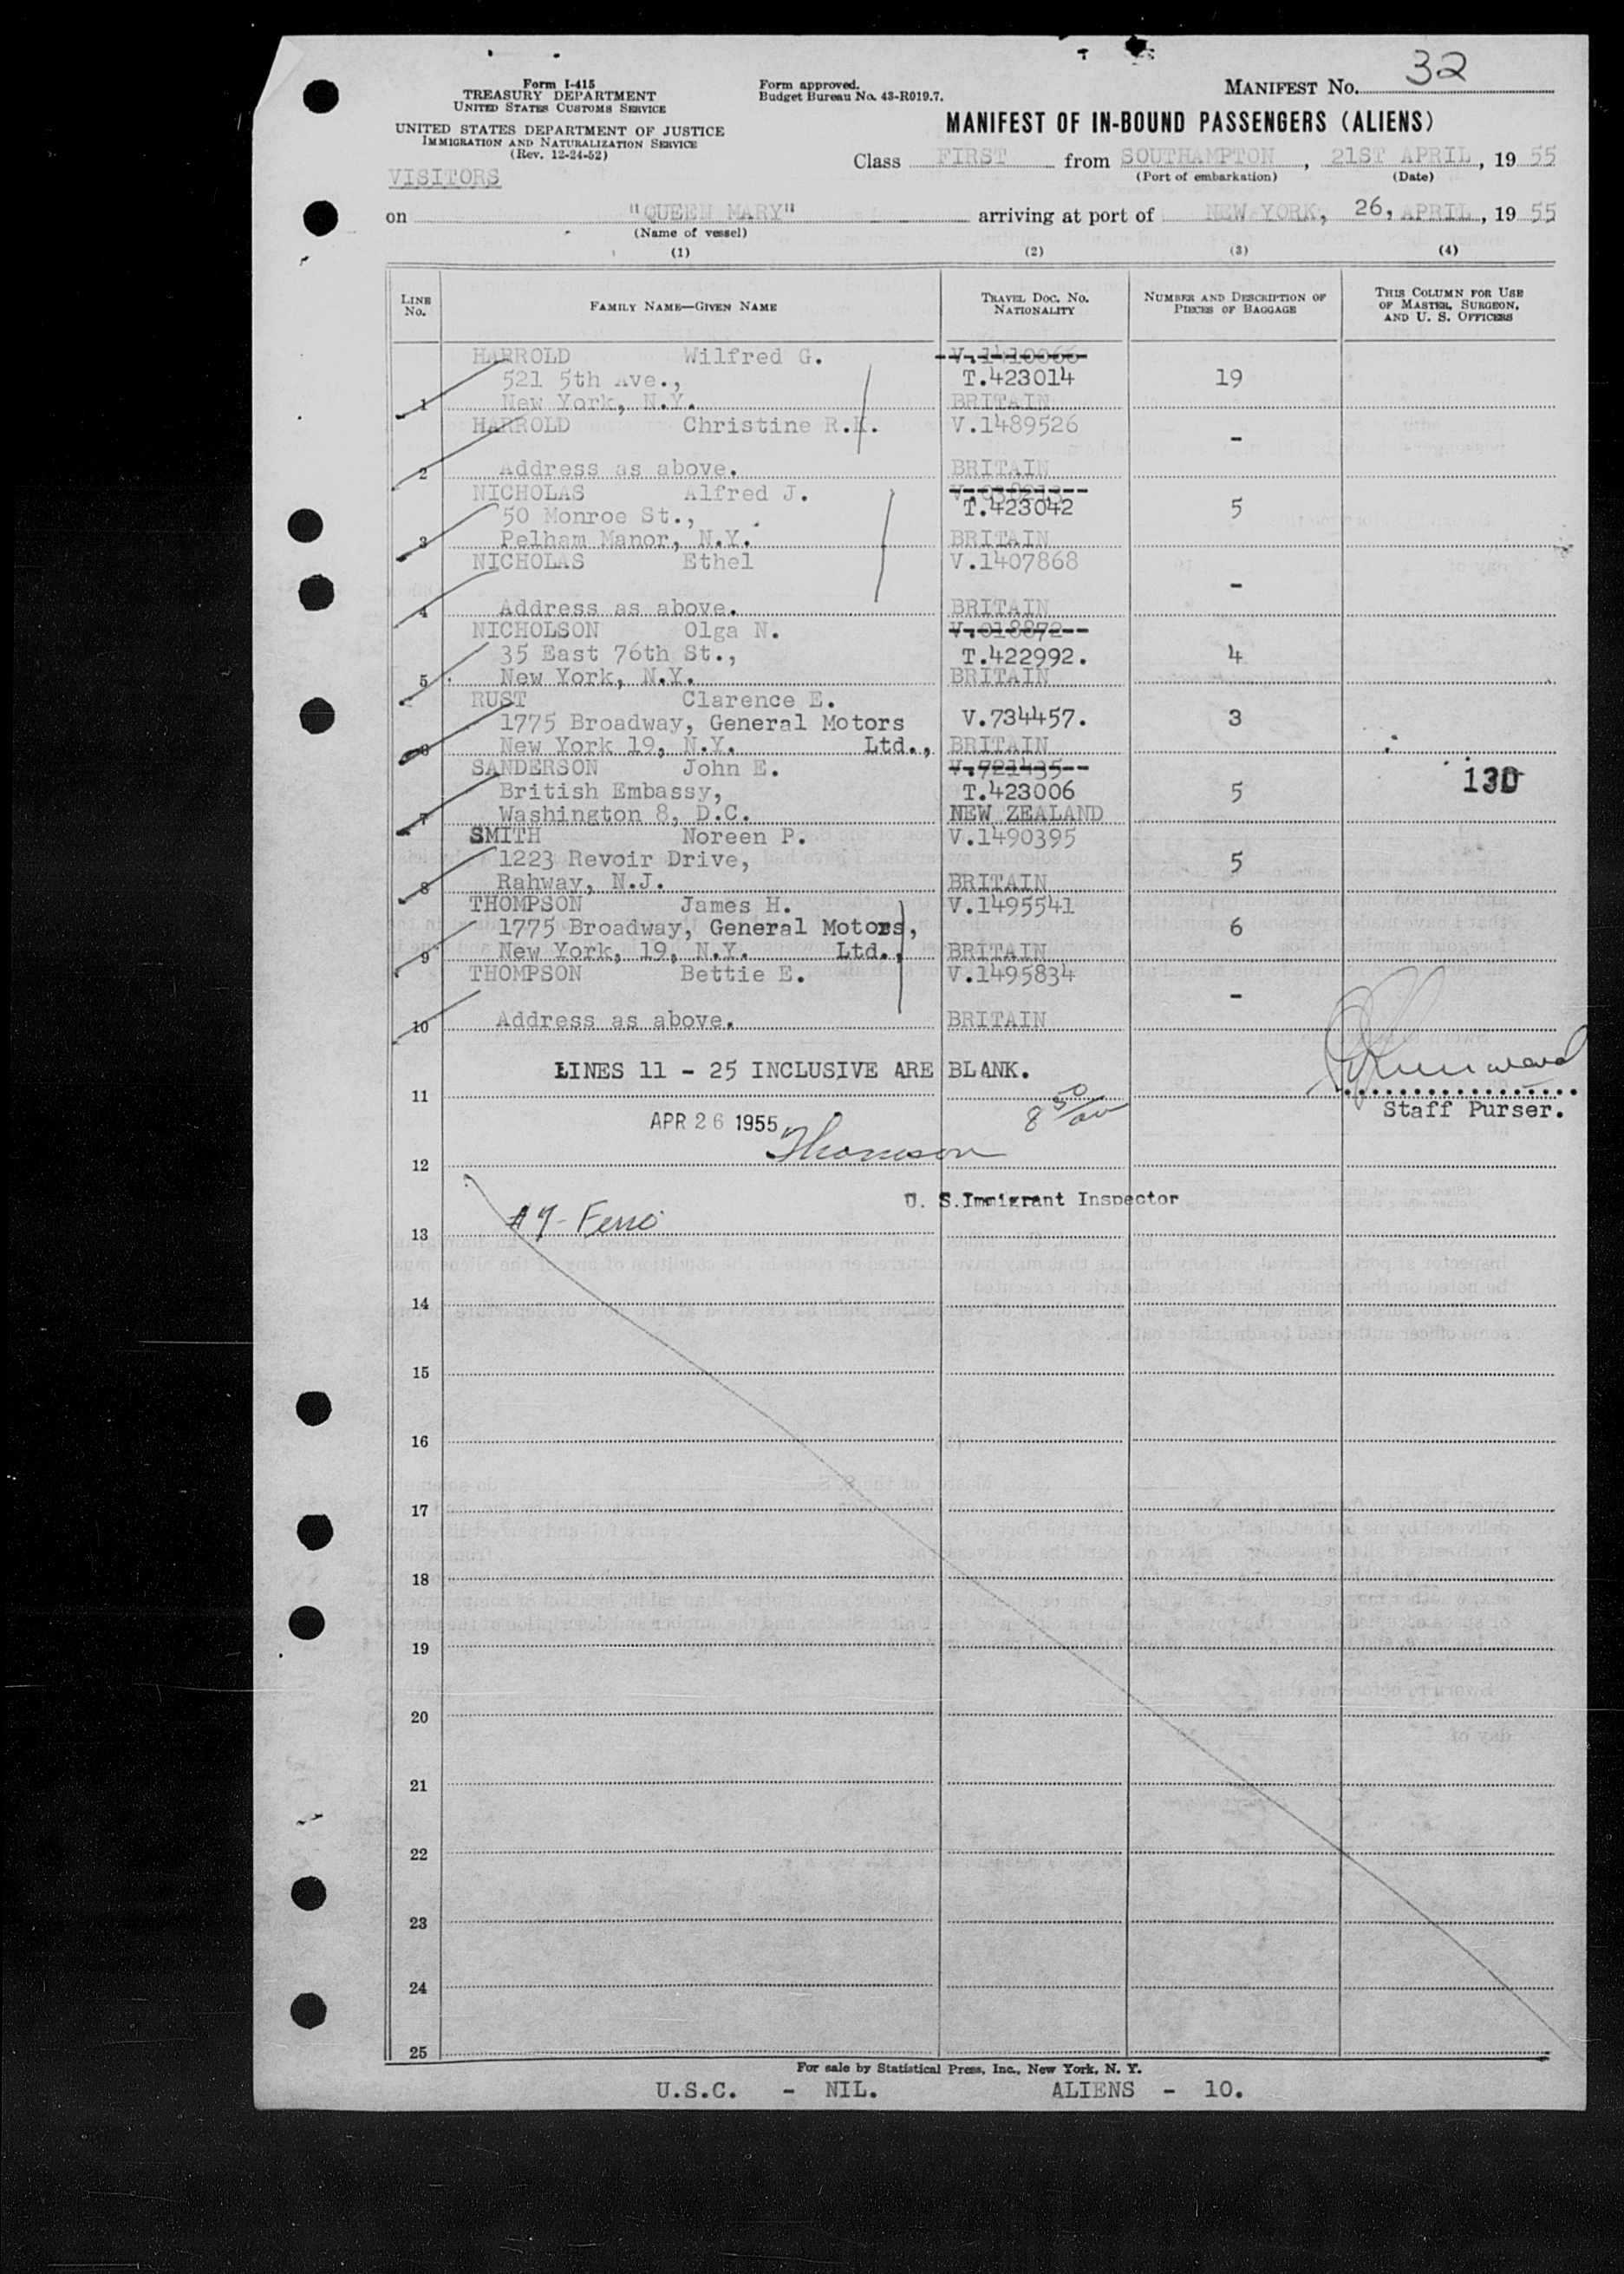 Form I-415
TREASURY DEPARTMENT
UNITED STATES CUSTOMS SERVICE
UNITED STATES DEPARTMENT OF JUSTICE
IMMIGRATION AND NATURALIZATION SERVICE
(Rev. 12-24-52)
VISITORS
Form approved.
Budget Bureau No. 43-R019.7.
MANIFEST No. 32
MANIFEST OF IN-BOUND PASSENGERS (ALIENS)
Class FIRST from SOUTHAMPTON, 21ST APRIL, 19 55
(Port of embarkation) (Date)
on "QUEEN MARY" arriving at port of NEW YORK, 26, APRIL, 19 55
(Name of vessel)
(1) (2) (3) (4)
LINE No. FAMILY NAME—GIVEN NAME TRAVEL DOC. NO. NATIONALITY NUMBER AND DESCRIPTION OF PIECES OF BAGGAGE THIS COLUMN FOR USE OF MASTER, SURGEON, AND U. S. OFFICERS
HARROLD Wilfred G. V.1410066
521 5th Ave., T.423014 19
1 New York, N.Y. BRITAIN
HARROLD Christine R.K. V.1489526
-
2 Address as above. BRITAIN
NICHOLAS Alfred J.
50 Monroe St., T.423042 5
3 Pelham Manor, N.Y. BRITAIN
NICHOLAS Ethel V.1407868
-
4 Address as above. BRITAIN
NICHOLSON Olga N. V.018872
35 East 76th St., T.422992. 4
5 New York, N.Y. BRITAIN
RUST Clarence E.
1775 Broadway, General Motors V.734457. 3
6 New York 19, N.Y. Ltd., BRITAIN
SANDERSON John E. V.721435 130
British Embassy, T.423006 5
7 Washington 8, D.C. NEW ZEALAND
SMITH Noreen P. V.1490395
1223 Revoir Drive, 5
8 Rahway, N.J. BRITAIN
THOMPSON James H. V.1495541
1775 Broadway, General Motors, 6
9 New York, 19, N.Y. Ltd., BRITAIN
THOMPSON Bettie E. V.1495834
-
10 Address as above. BRITAIN
LINES 11 - 25 INCLUSIVE ARE BLANK.
11
Staff Purser.
APR 26 1955 8 50/
12 Thomson
U. S. Immigrant Inspector
13
14
15
16
17
18
19
20
21
22
23
24
25
For sale by Statistical Press, Inc., New York, N. Y.
U.S.C. - NIL. ALIENS - 10.